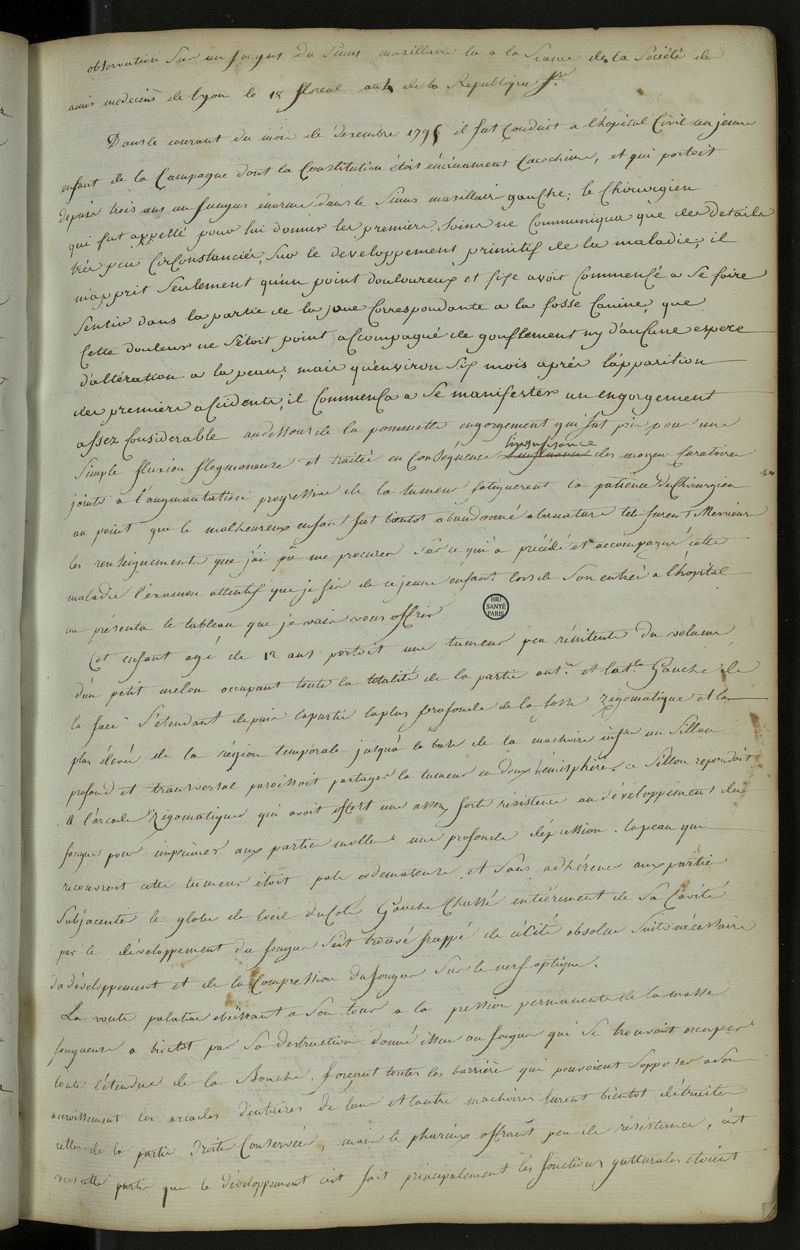 observation Sur un fongus du Sinus maxillaire lu a la Seance de la Société de
amis medecins de Lyon le 18 floreal an de la Republique fse
Dans le courant du mois de decembre 1795 il fut Conduit a l'hôpital Civil un jeune
enfant de la Campagne dont la Constitution étois éminament Cacochime, et qui portoit
depuis trois ans un fungus énorme dans le Sinus maxillaire gauche; le Chirurgien
qui fut appellé pour lui donner les premiers Soins ne Communiqua que des details
très peu Circonstanciés, Sur le developpement primitif de la maladie; il
m'apprit Seulement qu'un point douloureux et fixe avoit Commencé a Se faire
Sentir dans la partie de la joue Correspondante a la fosse Canine, que
Cette douleur ne S'étoit point accompagné de gonflement ny d'aucune espece
d'altération a la peau; mais qu'environ Six mois après l'apparition
des premiers accidents, il Commença a Se manifester un engorgement
assez Considerable audessous de la pommette engorgement qui fut pris pour une
Simple fluxion flegmoneuse et traitée en Conséquence l'insufisance des moyen Curatoire
joints a l'augmantation progressive de la tumeur fatiguerent la patience du Chirurgien
au point que le malheureux enfant fut bientot abandonné a la nature tel furent Messieurs
les renseignements que j'ai pu me procurer Sur ce qui a précédé et accompagné cette
maladie l'examen attentif que je fis de ce jeune enfant lors de Son entrée a l'hôpital
me présenta le tableau que je vais vous offrir
BIU SANTÉ PARIS
Cet enfant agé de 12 ans portoit une tumeur peu rénitente du volume
d'un petit melon occupant toute la totalité de la partie antre et latle Gauche de
la face S'étendant depuis la partie la plus profonde de la fosse Zigomatique et la
plus élevée de la région temporale jusqu'a la base de la machoire infre un Sillon
profond et transversal paroissoit partager la tumeur en deux hémisphères, ce Sillon repondoit
a l'arcade Zigomatique qui avoit offert une assez forte résistence au développement du
fongus pour imprimer aux parties molles une profonde dépression. la peau qui
recouvroit cette tumeur étoit pale oedemateuse et Sans adhérence aux parties
Subjacentes le globe de l'oeil du Coté Gauche Chassé entièrement de Sa Cavité
par le développement du fongus S'est trouvé frappé de cécité absolue Suite nécessaire
du développement et de la Compression du fongus Sur le nerf optique.
La voute palatine obeissant a Son tour a la pression permanente de la masse
fongueuse a bientot par Sa destruction donné issue au fongus qui Se trouvait occuper
toute l'étendue de la Bouche. forçant toutes les barrière qui pouvoient S'opposer a Son
accroissement les arcades dentaires de l'une et l'autre machoires furent bientot détruites
celles de la partie droite Conservée, mais le pharinx offrant peu de résistence, c'est
vers cette partie que le développement c'est fait principalement les fonctions gutturales étoient